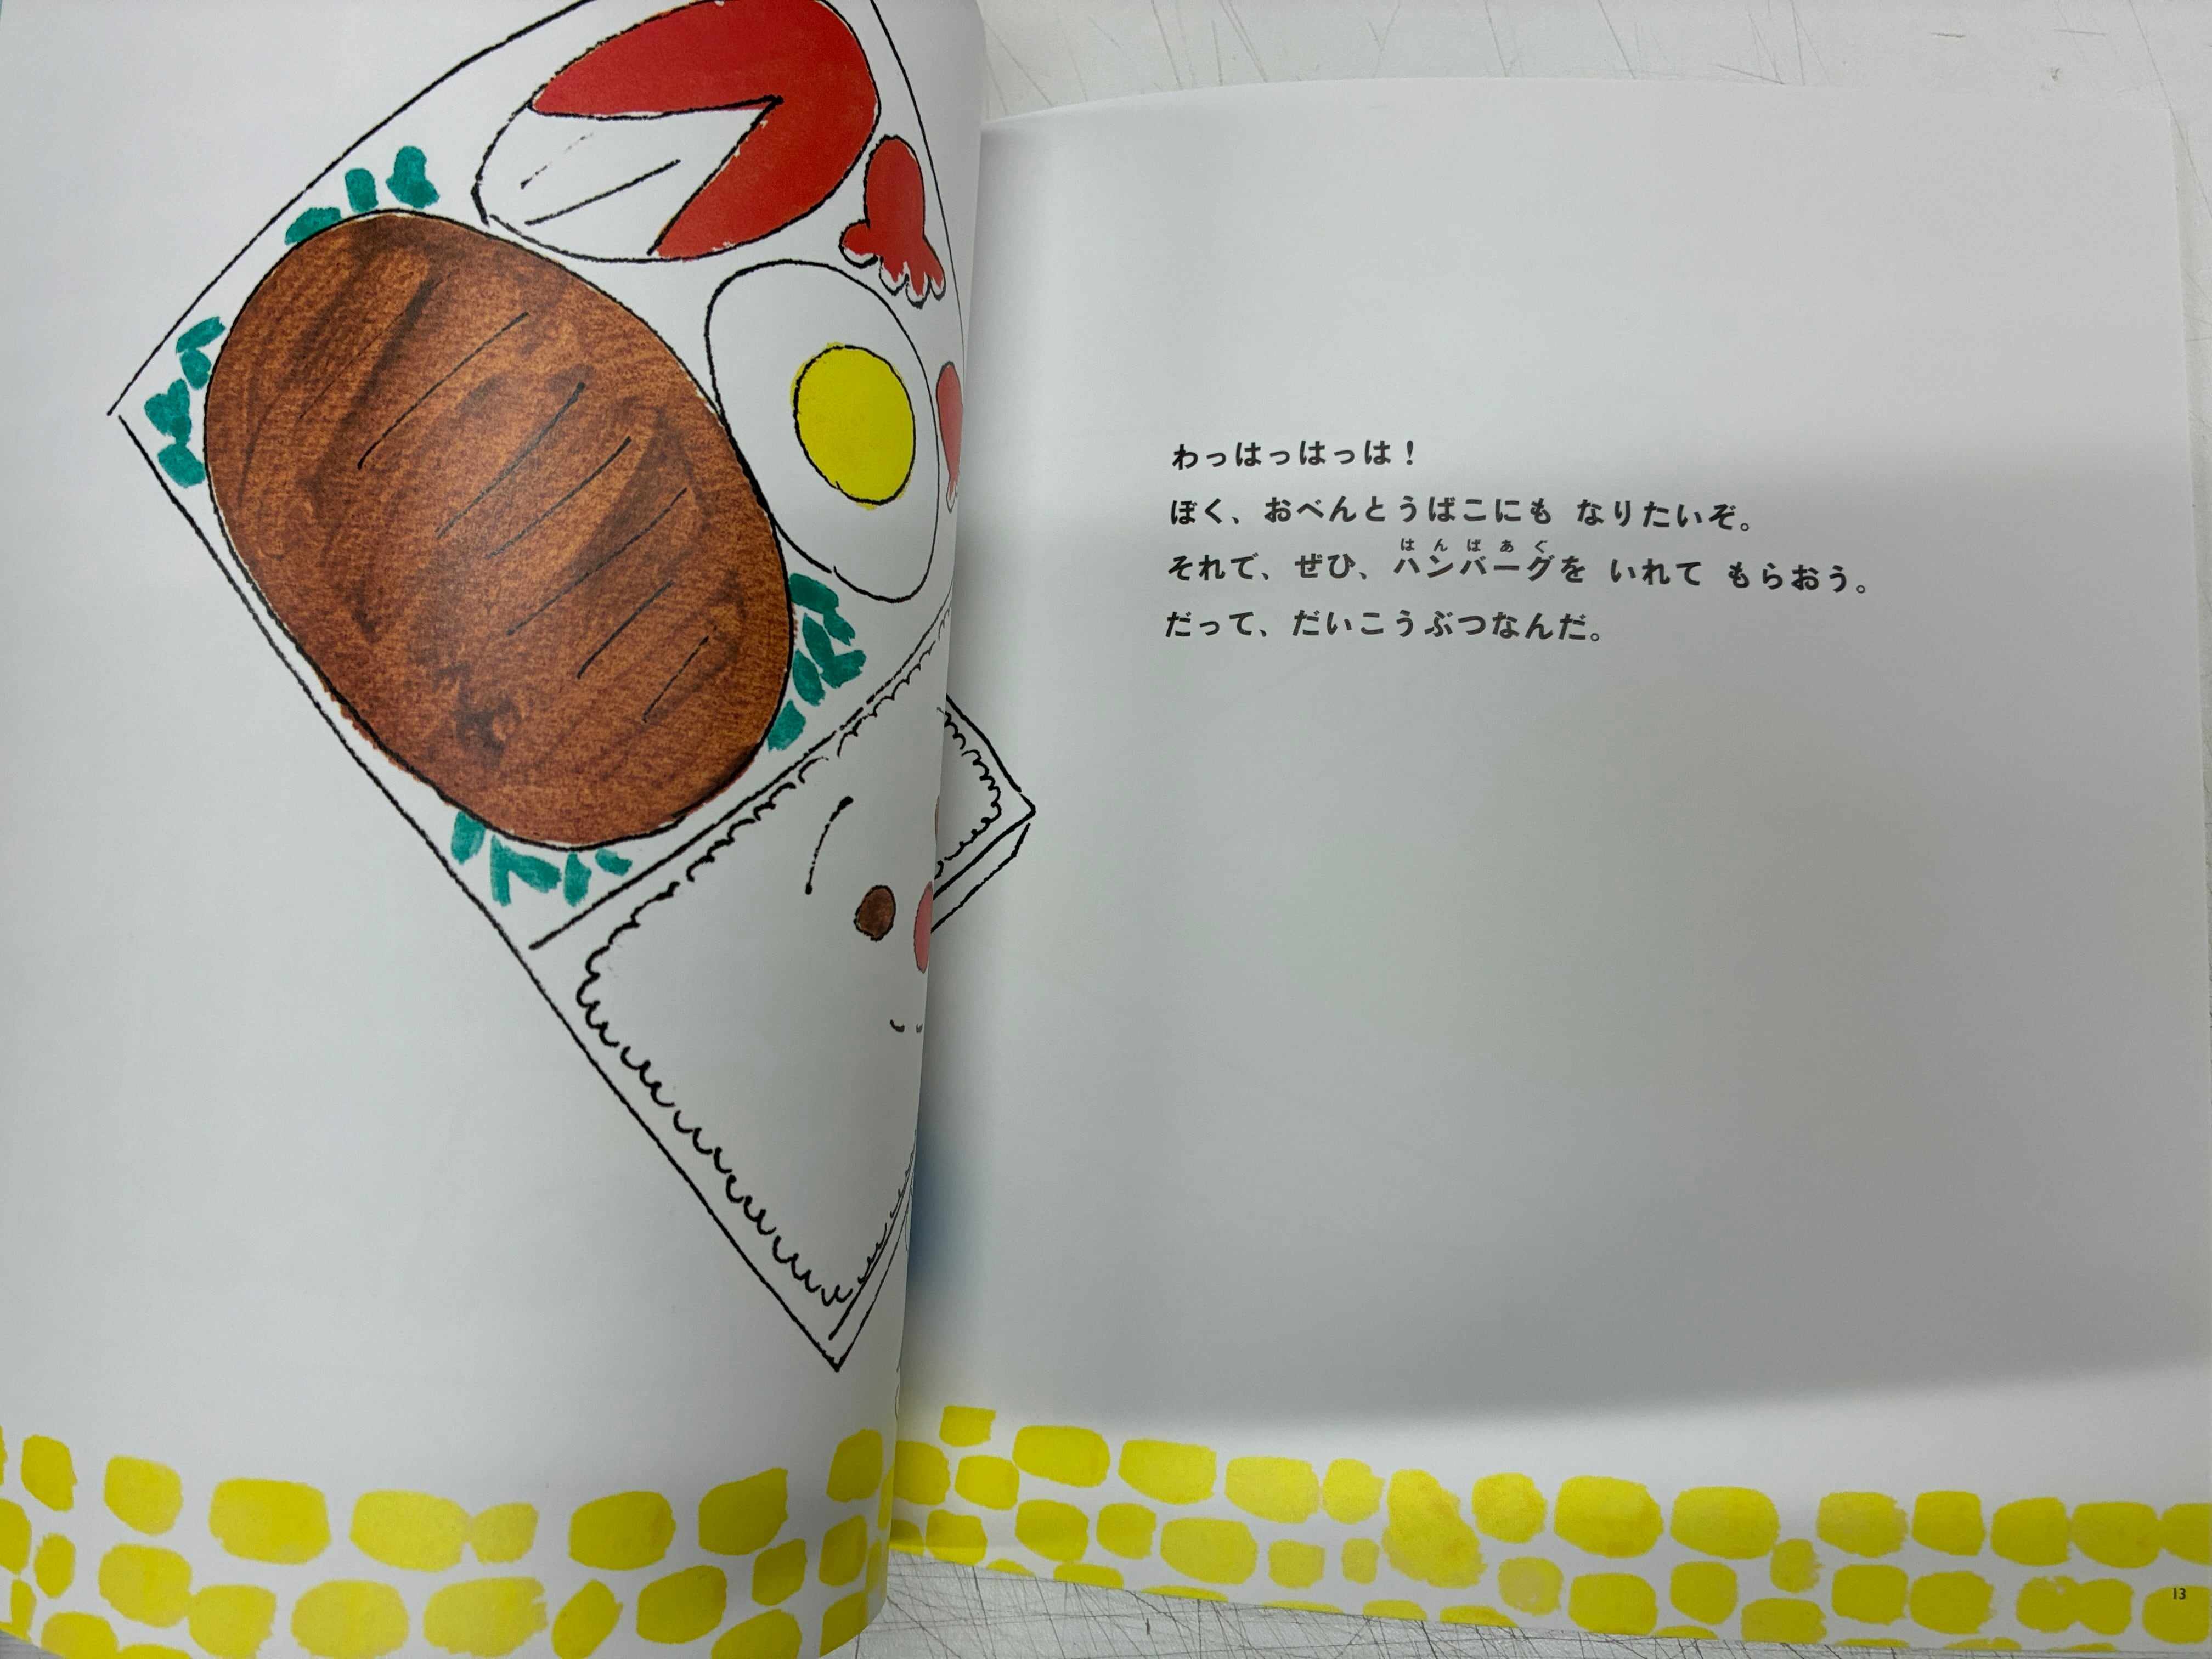 わっはっはっは！
ぼく、おべんとうばこにも なりたいぞ。
はんばあぐ
それで、ぜひ、ハンバーグを いれて もらおう。
だって、だいこうぶつなんだ。
13